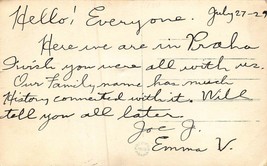 Hello! Everyone. July 27-29
Here we are in Praha
I wish you were all with us.
Our Family name has much
History connected with it. Will
tell you all later.
Joe J.
Emma V.